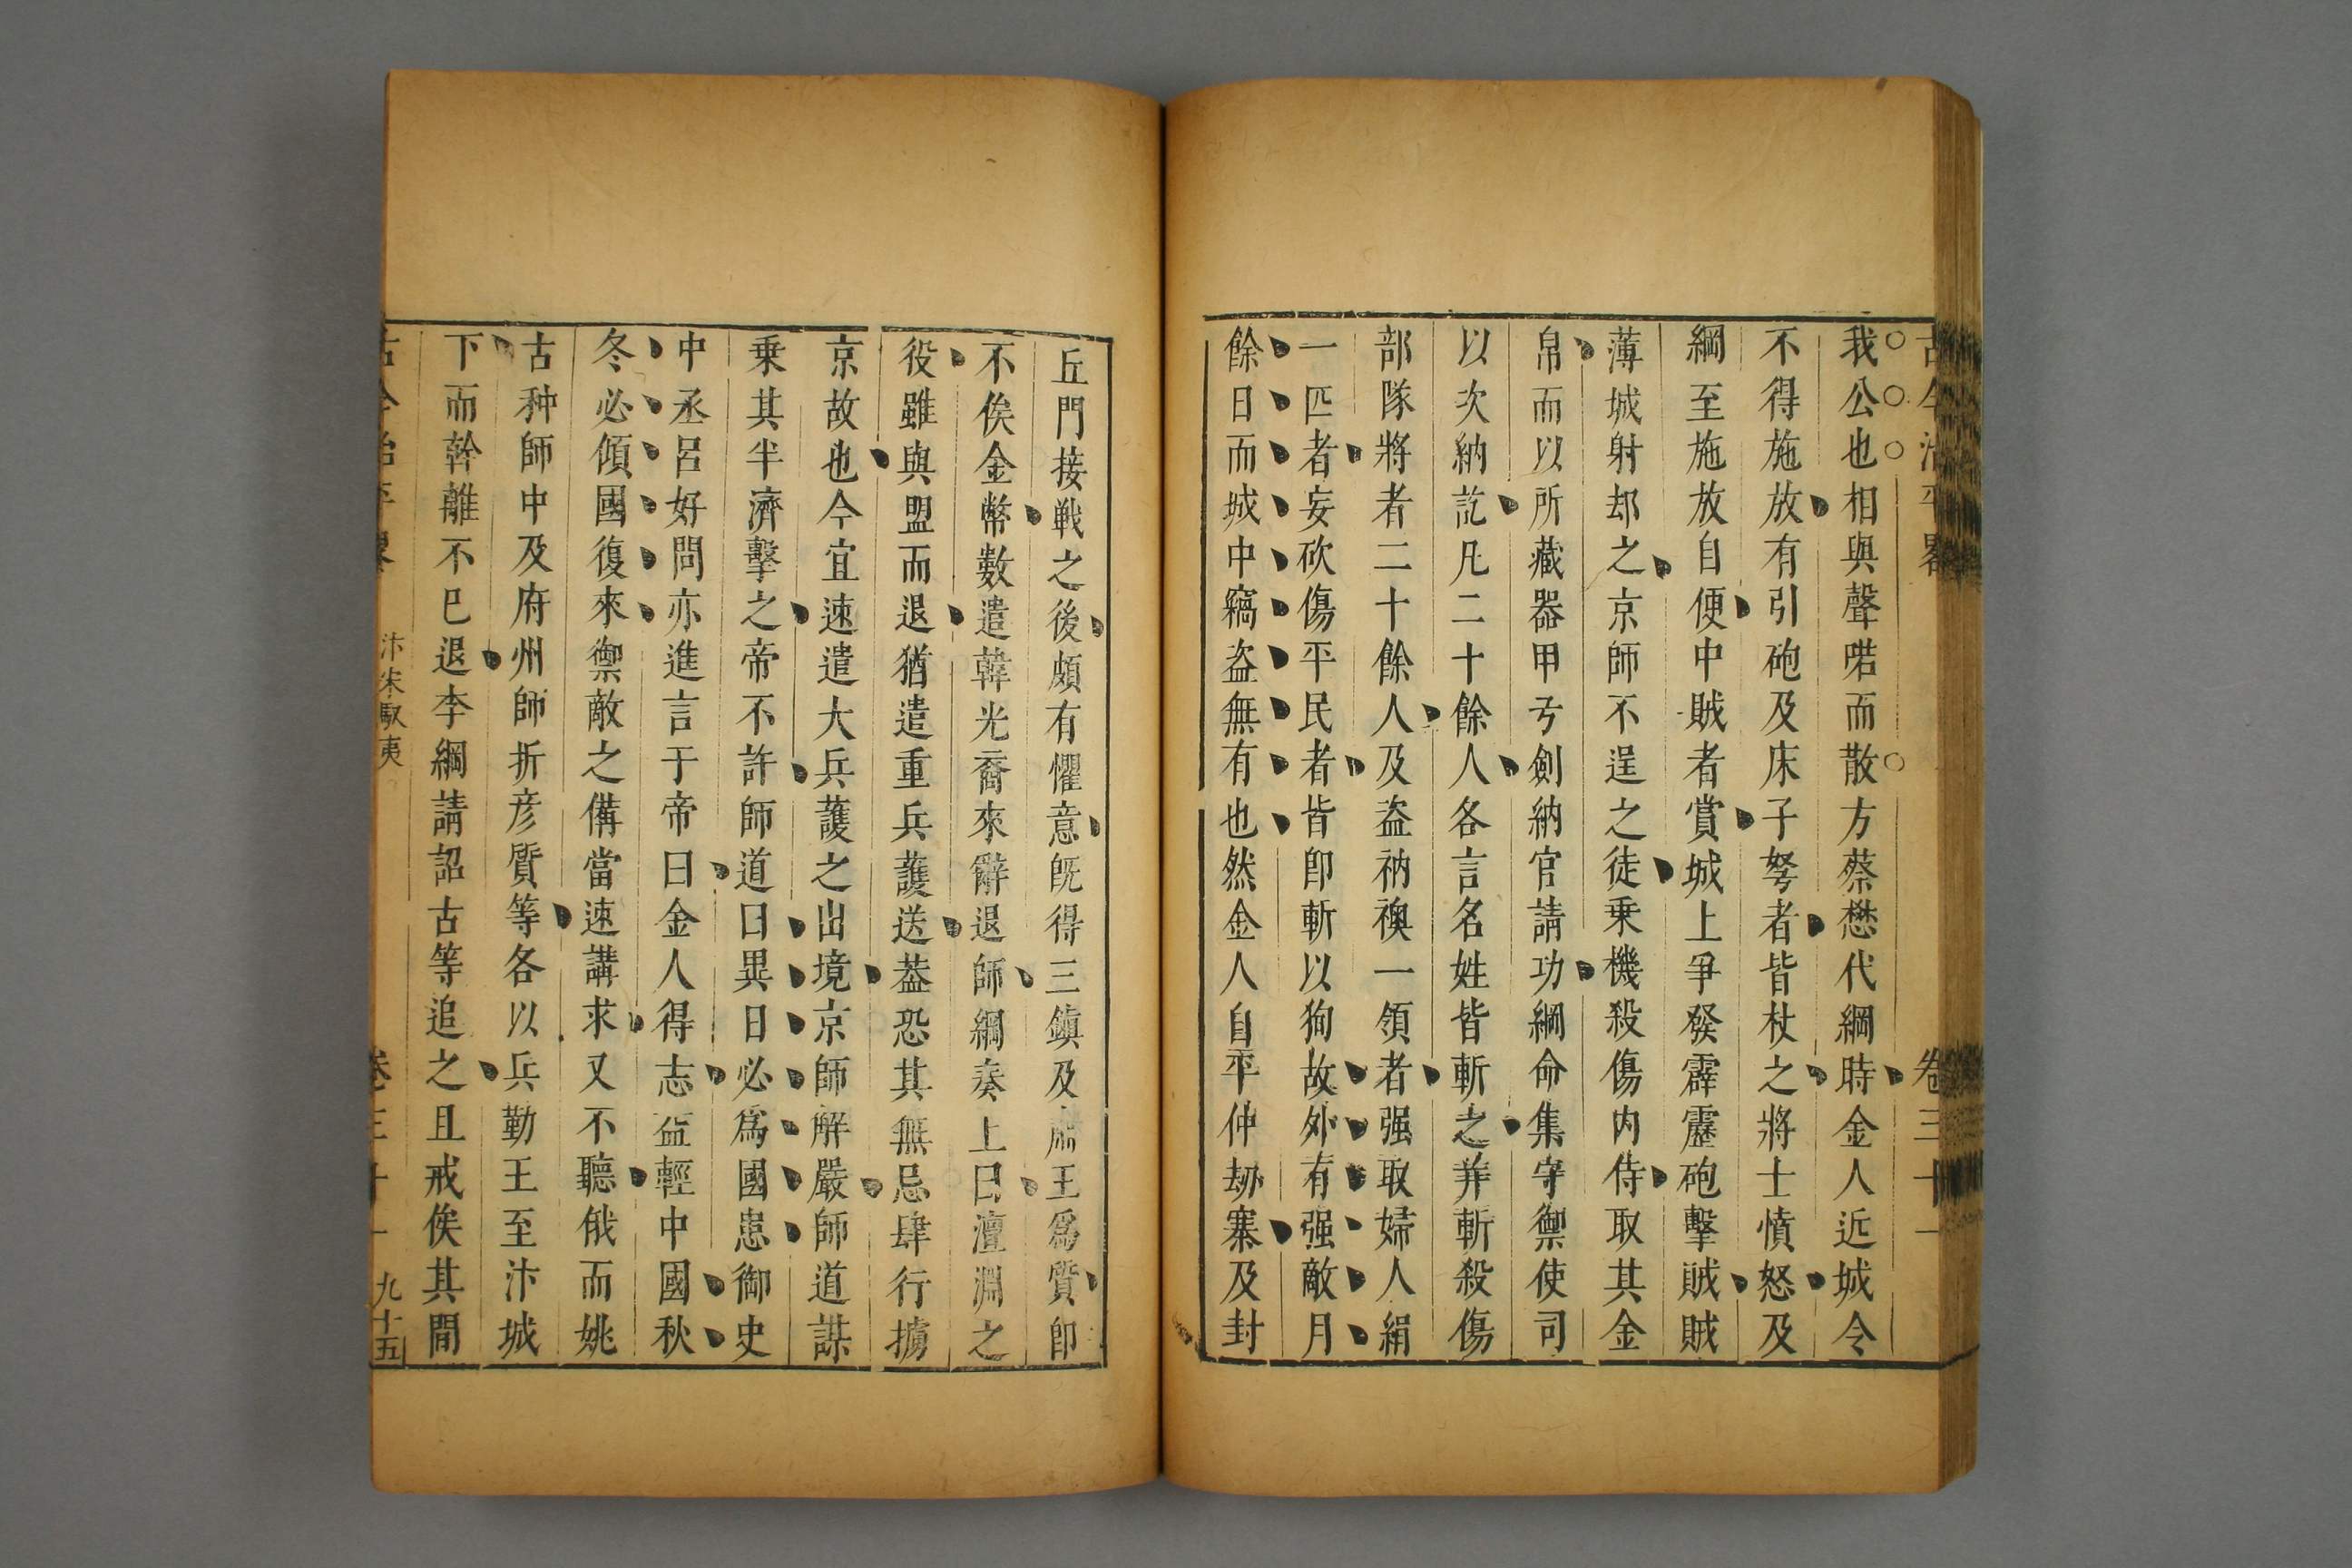 古今治平畧 卷三十一
我公也相與聲喏而散方蔡懋代綱時金人近城令
不得施放有引砲及床子弩者皆杖之將士憤怒及
綱至施放自便中賊者賞城上爭發霹靂砲擊賊賊
薄城射却之京師不逞之徒乗機殺傷内侍取其金
帛而以所藏器甲弓劍納官請功綱命集守禦使司
以次納訖凡二十餘人各言名姓皆斬之并斬殺傷
部隊將者二十餘人及盗衲襖一領者强取婦人絹
一匹者妄砍傷平民者皆即斬以狥故外有强敵月
餘日而城中竊盗無有也然金人自平仲刼寨及封
丘門接戦之後頗有懼意既得三鎮及肅王爲質即
不俟金幣數遣韓光裔來辭退師綱奏上曰澶淵之
役雖與盟而退猶遣重兵護送葢恐其無忌肆行擄
京故也今宜速遣大兵護之出境京師解嚴師道謀
乗其半濟擊之帝不許師道曰異日必爲國患御史
中丞呂好問亦進言于帝曰金人得志益輕中國秋
冬必傾國復來禦敵之備當速講求又不聽俄而姚
古种師中及府州師折彦質等各以兵勤王至汴城
下而幹離不已退李綱請詔古等追之且戒俟其間
古今治平畧 汴宋馭夷 卷三十一 九十五